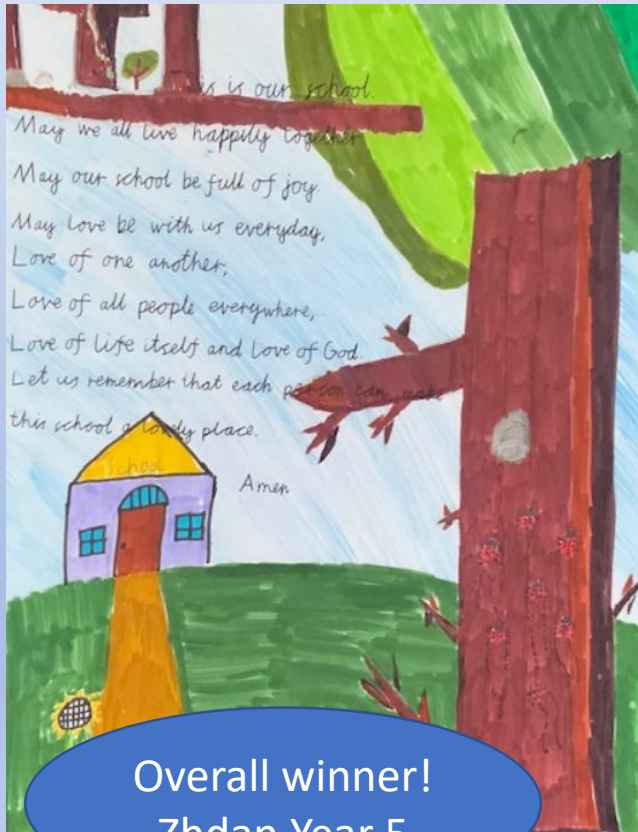 is is our school.
May we all live happily together
May our school be full of joy.
May Love be with us everyday,
Love of one another,
Love of all people everywhere,
Love of life itself and Love of God.
Let us remember that each person can make
this school a lovely place.
School
Amen
Overall winner!
Zhdan Year 5